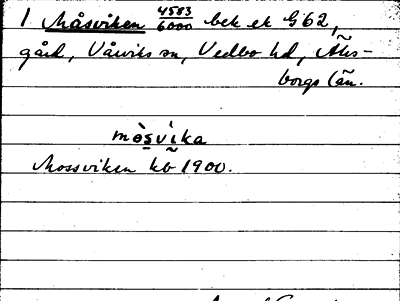 1 Måsviken 4583/6000 bek ek G62,
gård, Vårviks sn, Vedbo hd, Älvs-
borgs län.
mòsvi̇ka
Mossviken kb 1900.